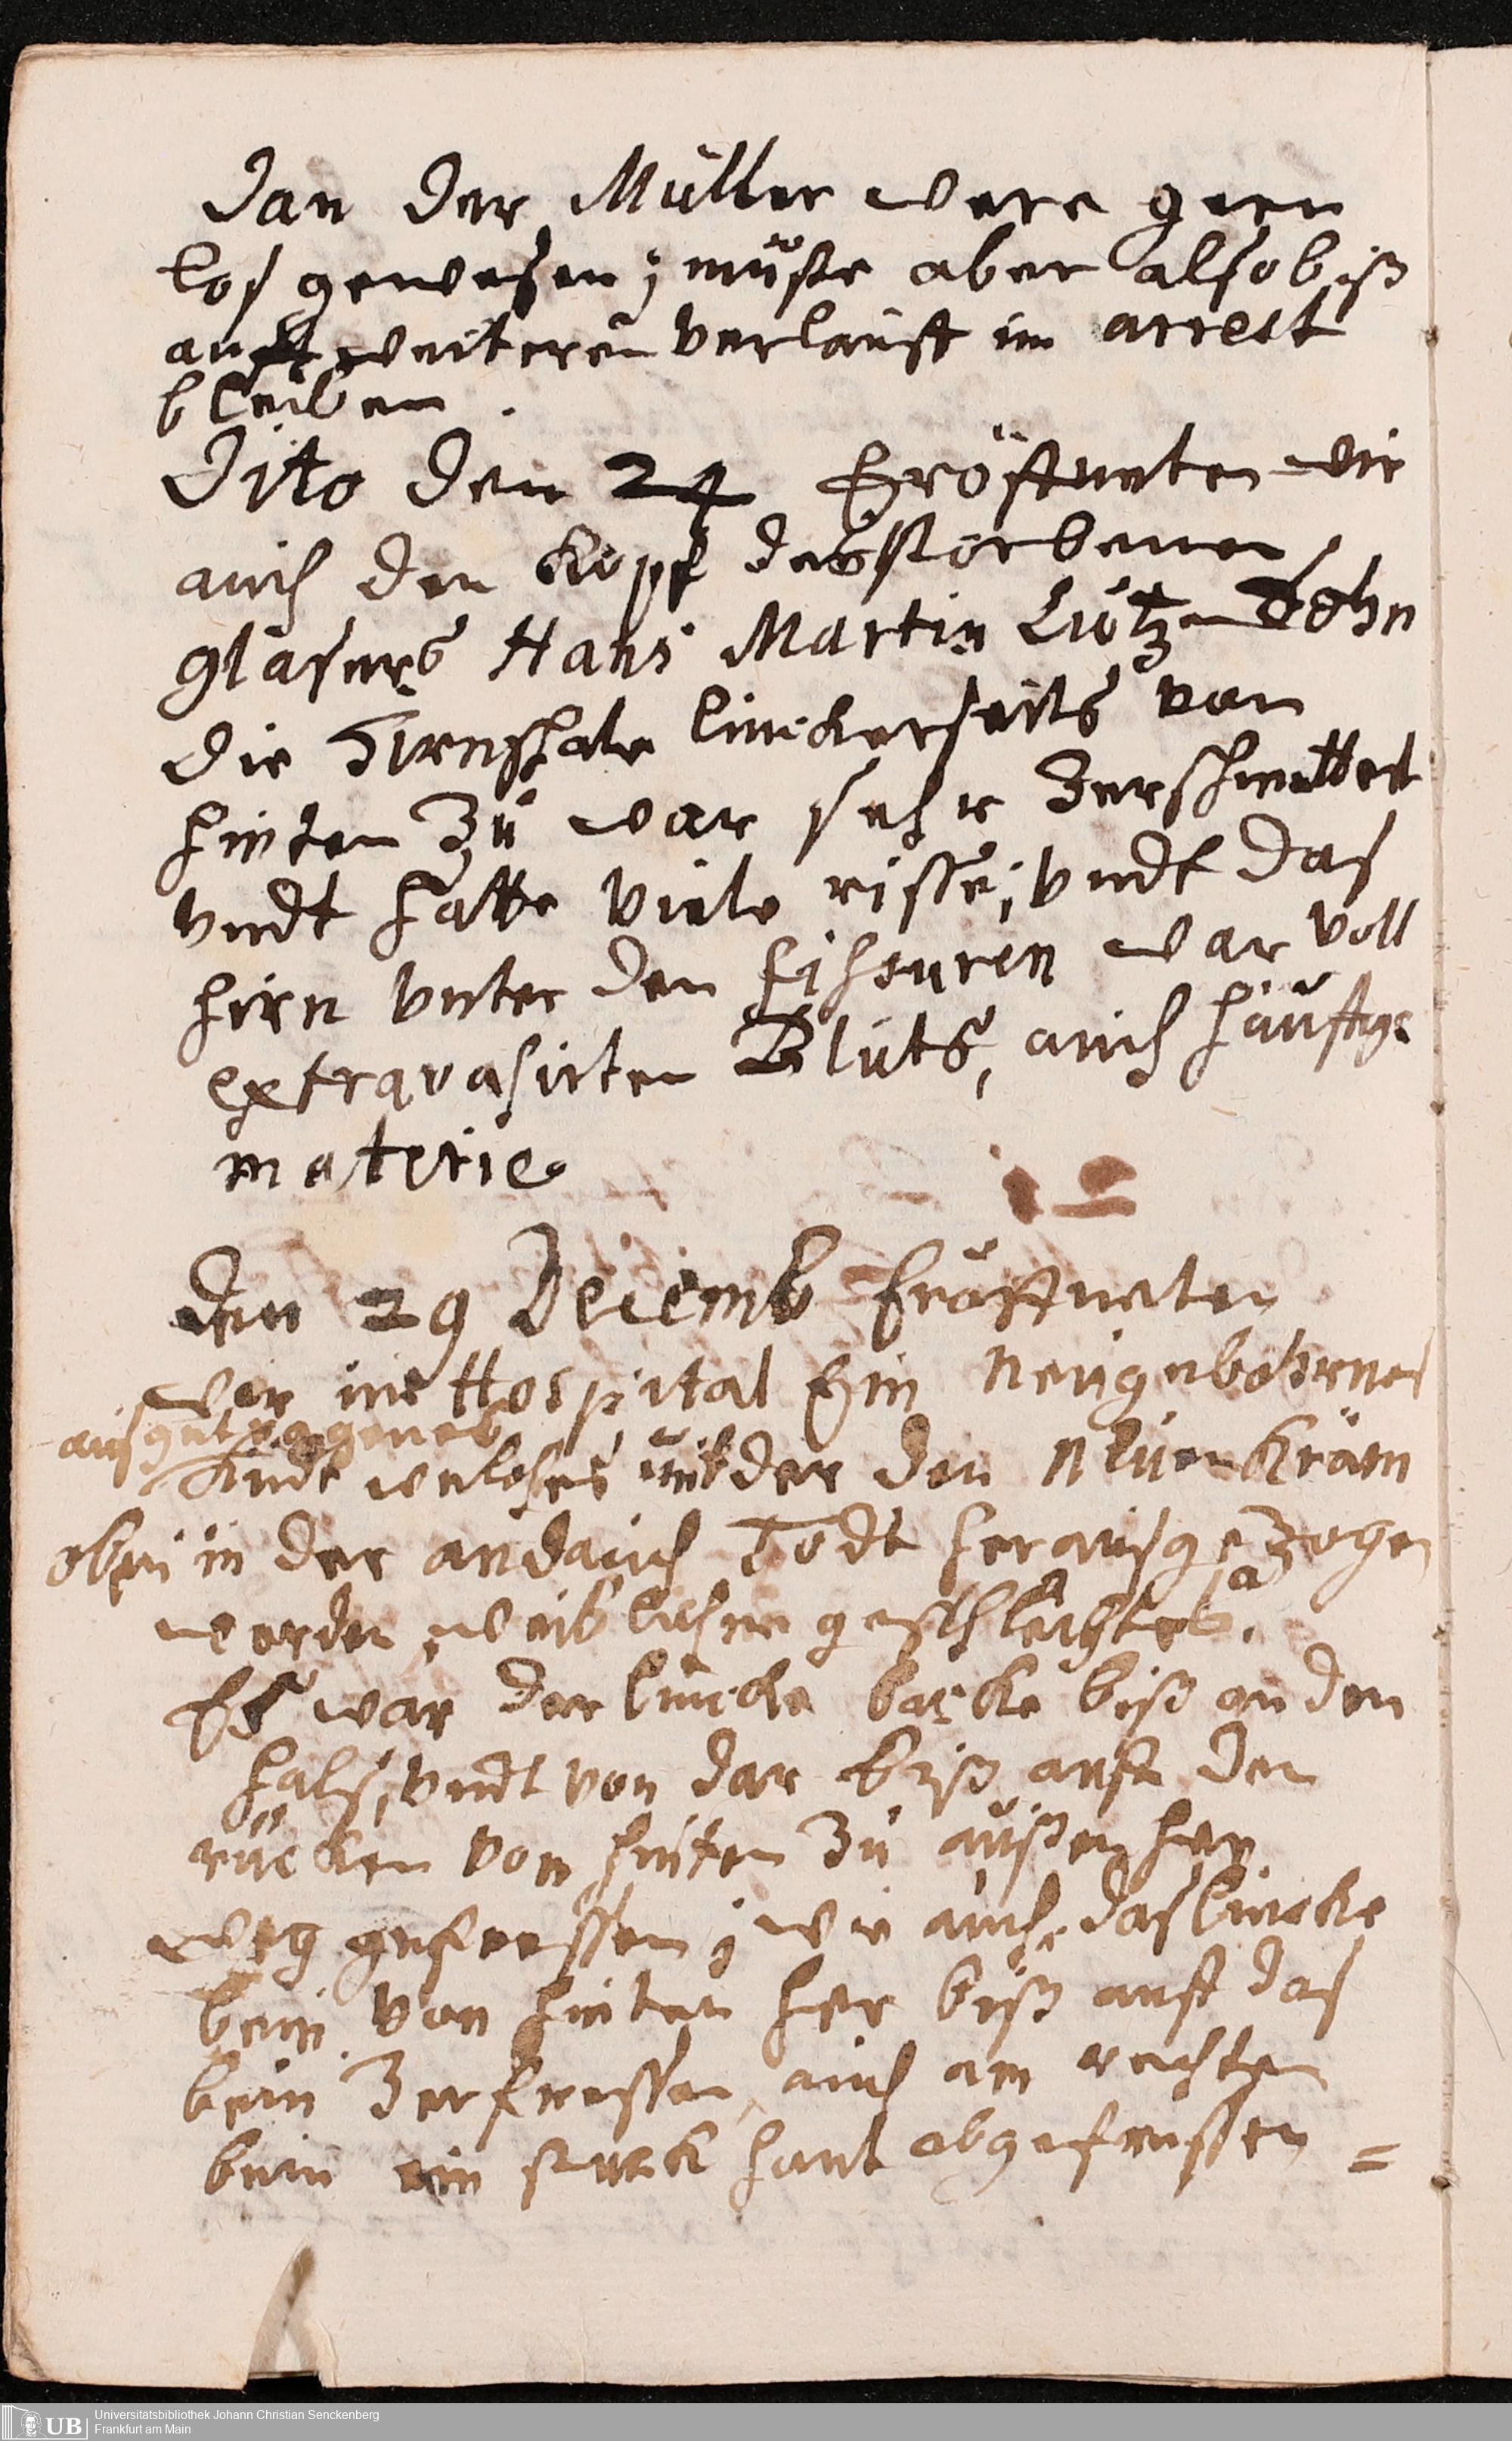 dan der Müller were gern
los gewesen; müste aber also biß
auff weiteren verlauff im arrest
bleiben.
Dito den 24 Eröffneten wir
auch den Kopf deß storbenen
glasers Hans Martin Lutz Sohn
die Hirnschale linckerseits von
hinten zu war sehr zerschmettert
vndt hatte viele risse; vndt das
hirn vnter den fissuren war voll
extravasirten Bluts, auch häuffige
materie
den 29 Decemb Eröffneten
wir im Hospital Ein neugebohrnes
ausgetragenes
Kindt welches der den Neuen Kräm
oben in der andauch Todt herausgezogen
worden, weiblichen geschlechtes.
Es war der lincke backe biß an den
halß, vndt von dar biß auff den
rücken von hinten zu außen her
weg gefressen; wie auch das lincke
bein von hinten her biß auff das
bein zerfressen, auch am rechten
bein ein stuck haut abgefressen =
UB Universitätsbibliothek Johann Christian Senckenberg
Frankfurt am Main